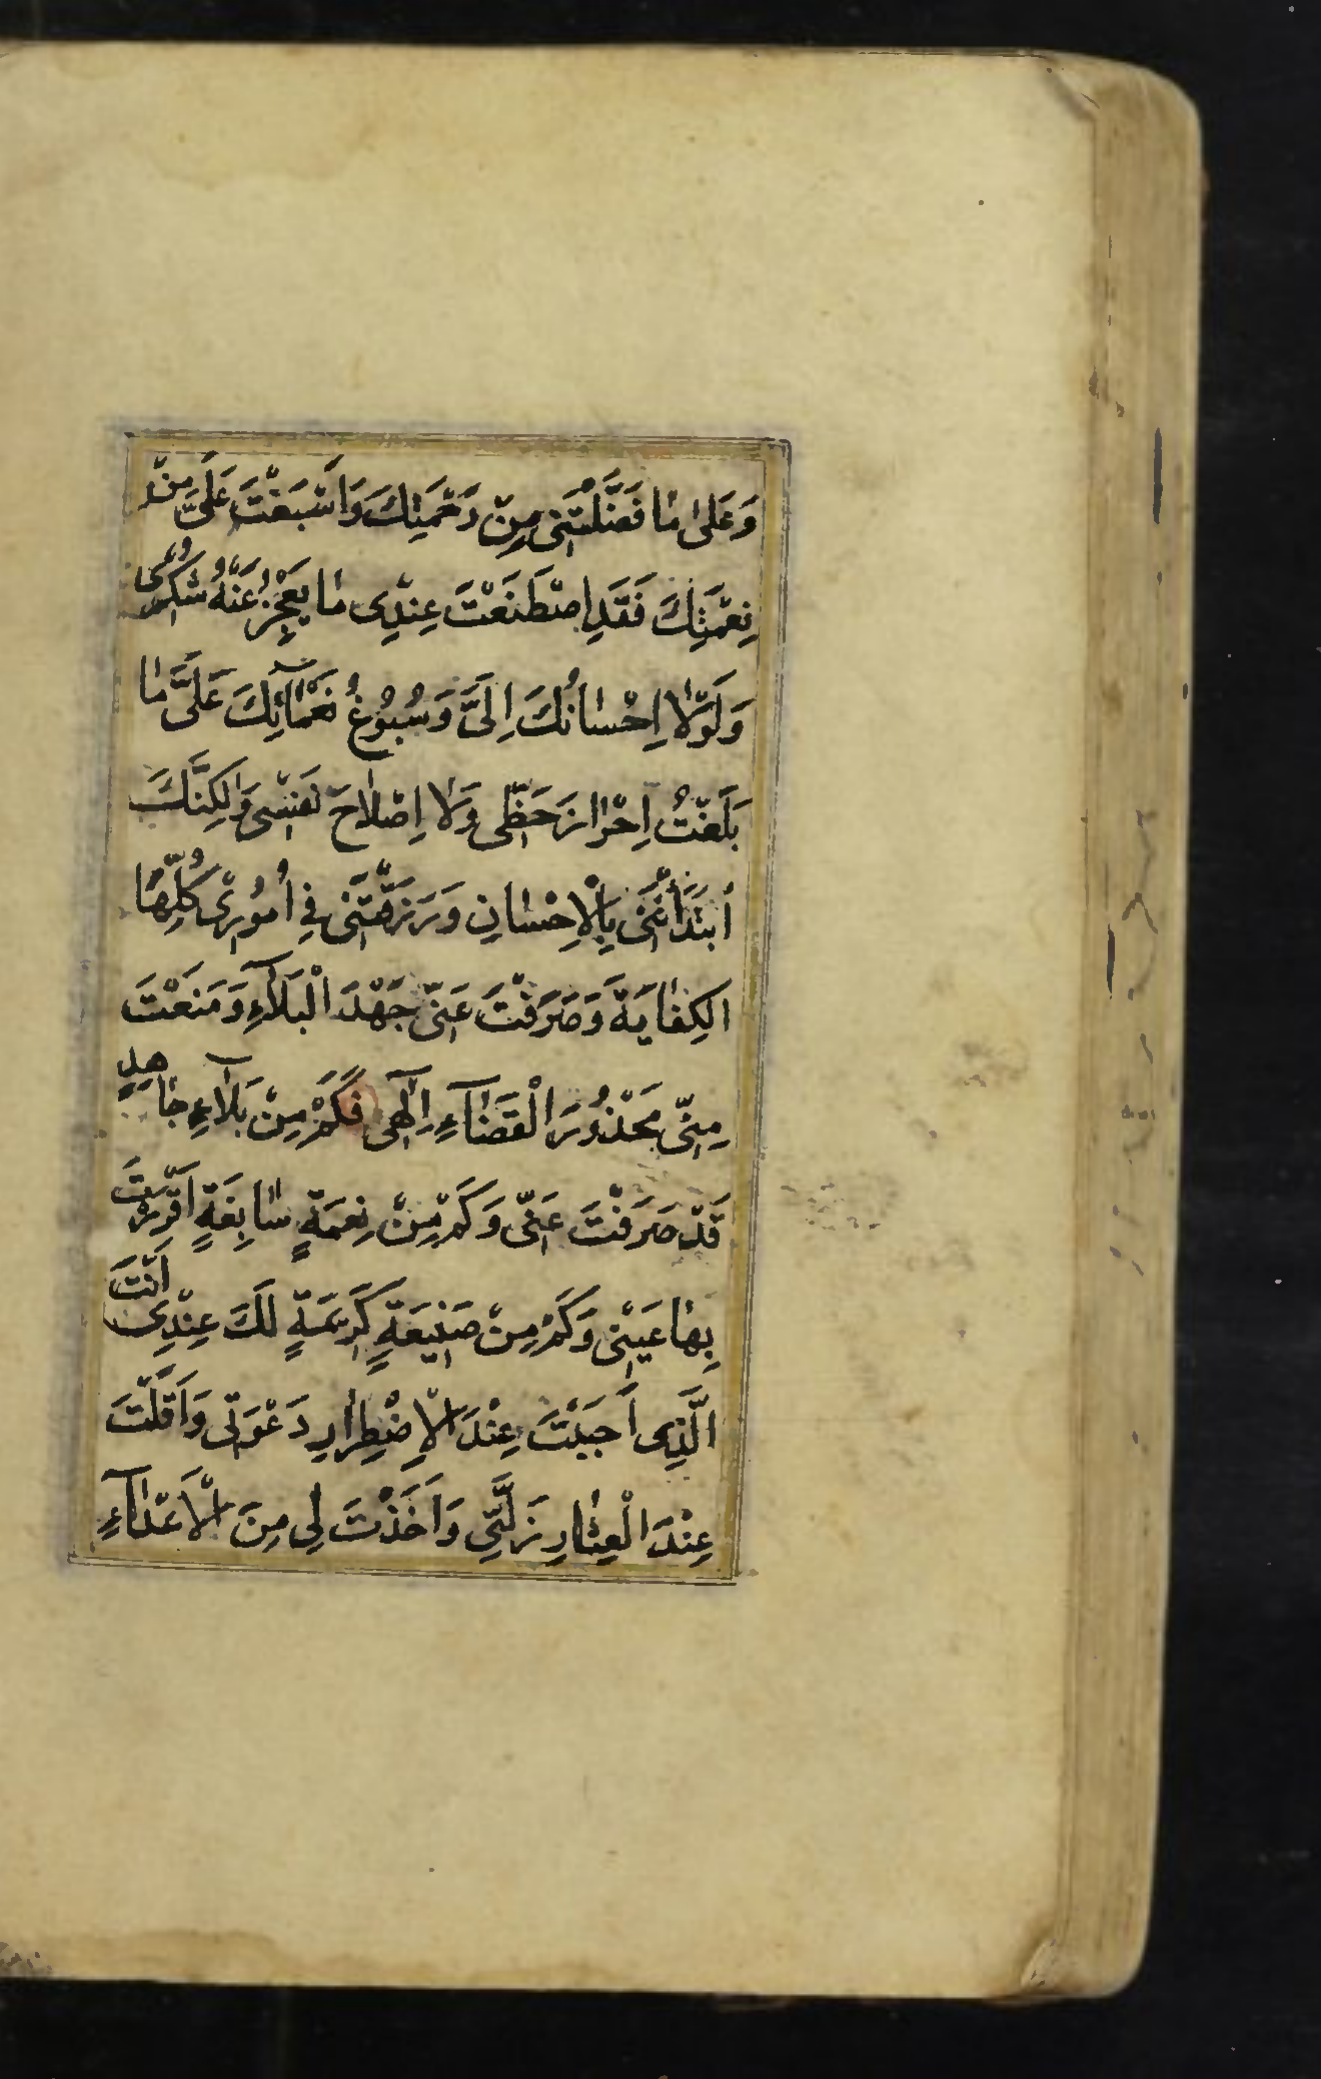 وَعَلىٰ مٰا فَضَّلْتَنى مِنْ رَحْمَتِكَ وَاَسْبَغْتَ عَلَىَّ مِنْ
نِعْمَتِكَ فَقَدِ اصْطَنَعْتَ عِنْدِى مٰا يَعْجِزُ عَنْهُ شُكْرِى
وَلَوْلاٰ اِحْسٰانُكَ اِلَىَّ وَسُبُوغُ نَعْمٰآئِكَ عَلَىَّ مٰا
بَلَغْتُ اِحْرٰازَ حَظّى وَلاٰ اِصْلاٰحَ نَفْسْى وَلٰكِنَّكَ
اُبْتَدَأْتَنَى بِالْاِحْسٰانِ وَرَزَقْتَنى فِى اُمُورِى كُلِّهٰا
الكِفٰايَةَ وَصَرَفْتَ عَنّى جَهْدَ الْبَلآٰءِ وَمَنَعْتَ
مِنّى مَحْذُورَ الْقَضٰآءِ اِلٰهى فَكَمْ مِنْ بَلآٰءٍ جٰاهِدٍ
قَدْ صَرَفْتَ عَنّى وَكَمْ مِنْ نِعمَةٍ سٰابِغَةٍ اَقْرَرْتَ
بِهٰا عَيْنى وَكَمْ مِنْ صَنيعَةٍ كَريمَةٍ لَكَ عِنْدِى اَنْتَ
الَّذِى اَجَبْتَ عِنْدَ الْاِضْطِرٰارِ دَعْوَتى وَاَقَلْتَ
عِنْدَ الْعِثٰارِ زَلَّتِى وَاَخَذْتَ لِى مِنَ الْاَعْدٰآءِ